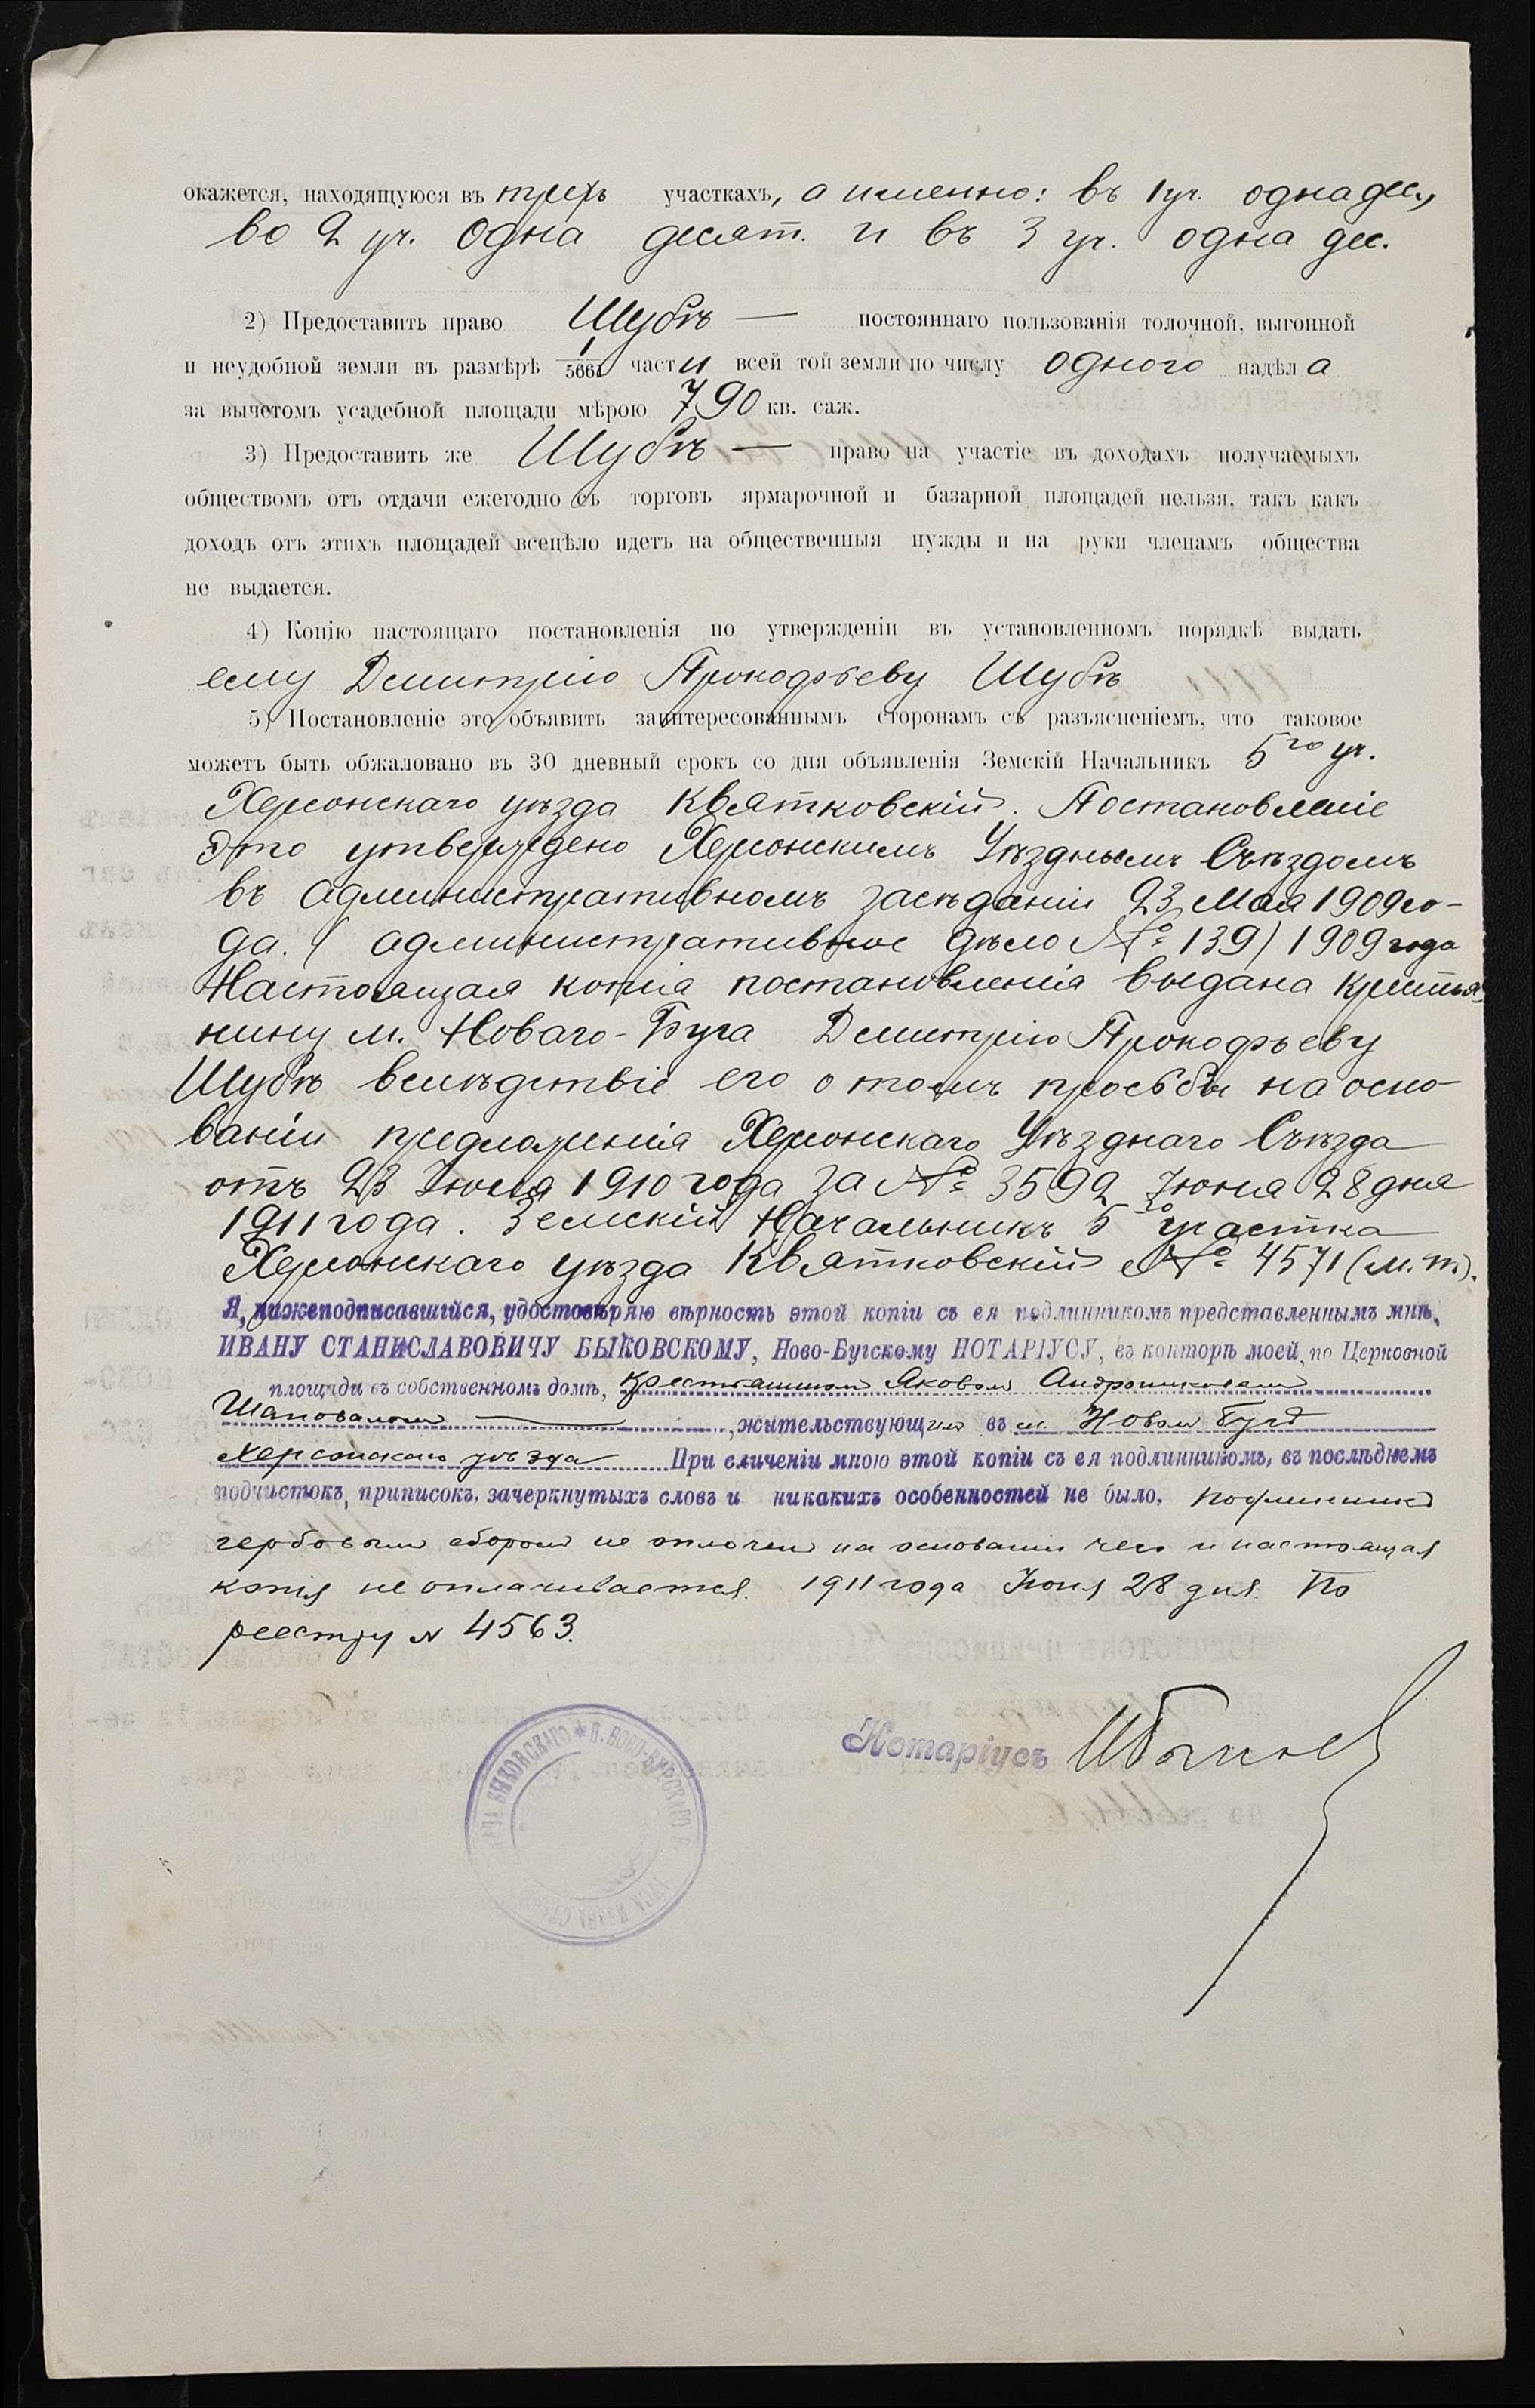 окажется, находящуюся въ трехъ участкахъ, а именно: въ 1 уч. одна дес.,
во 2 уч. одна десят. и въ 3 уч. одна дес.
2) Предоставить право Шубѣ — постояннаго пользованія толочной, выгонной
и неудобной земли въ размѣрѣ 1/5661 части всей той земли по числу одного надѣла
за вычетомъ усадебной площади мѣрою 790 кв. саж.
3) Предоставить же Шубѣ — право на участіе въ доходахъ получаемыхъ
обществомъ отъ отдачи ежегодно съ торговъ ярмарочной и базарной площадей нельзя, такъ какъ
доходъ отъ этихъ площадей всецѣло идетъ на общественныя нужды и на руки членамъ общества
не выдается.
4) Копію настоящаго постановленія по утвержденіи въ установленномъ порядкѣ выдать
ему Дмитрію Прокофьеву Шубѣ
5) Постановленіе это объявить заинтересованнымъ сторонамъ съ разъясненіемъ, что таковое
можетъ быть обжаловано въ 30 дневный срокъ со дня объявленія Земскій Начальникъ 5го уч.
Херсонскаго уѣзда Квятковскій. Постановленіе
это утверждено Херсонскимъ Уѣзднымъ Съѣздомъ
въ административномъ засѣданіи 23 Мая 1909 го-
да. (административное дѣло № 139) 1909 года
Настоящая копія постановленія выдана крестья-
нину м. Новаго-Буга Дмитрію Прокофьеву
Шубѣ вслѣдствіе его о томъ просьбы на осно-
ваніи предложенія Херсонскаго Уѣзднаго Съѣзда
отъ 23 Іюля 1910 года за № 3592 Іюня 28 дня
1911 года. Земскій Начальникъ 5го участка
Херсонскаго уѣзда Квятковскій № 4571 (м.п.).
Я, нижеподписавшійся, удостовѣряю вѣрность этой копіи съ ея подлинникомъ представленнымъ мнѣ,
ИВАНУ СТАНИСЛАВОВИЧУ БЫКОВСКОМУ, Ново-Бугскому НОТАРІУСУ, въ конторѣ моей, по Церковной
площади въ собственномъ домѣ, крестьяниномъ Яковомъ Андрониковымъ
Шаповаломъ —, жительствующимъ въ м. Новомъ Бугѣ
Херсонскаго уѣзда При сличеніи мною этой копіи съ ея подлинникомъ, въ послѣднемъ
подчистокъ, приписокъ, зачеркнутыхъ словъ и никакихъ особенностей не было. Подлинникъ
гербовымъ сборомъ не оплоченъ на основаніи чего и настоящая
копія не оплачивается. 1911 года Іюня 28 дня. По
реестру N 4563.
Нотаріусъ